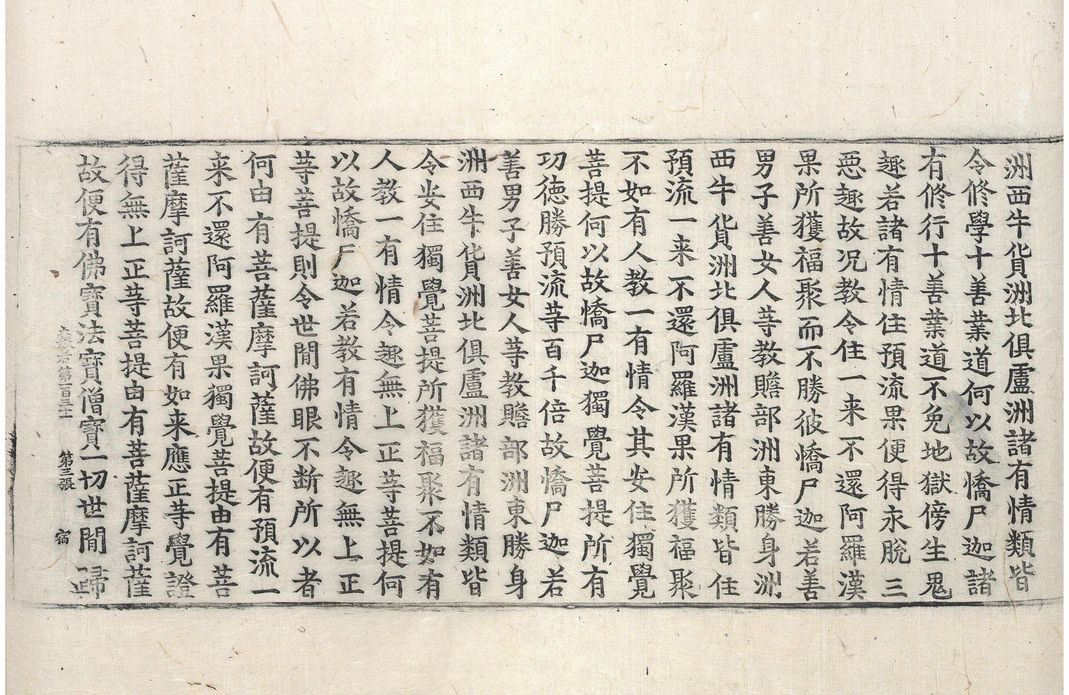 洲西牛貨洲北俱盧洲諸有情類皆
令修學十善業道何以故憍尸迦諸
有修行十善業道不免地獄傍生鬼
趣若諸有情住預流果便得永脫三
惡趣故况教令住一来不還阿羅漢
果所獲福聚而不勝彼憍尸迦若善
男子善女人等教贍部洲東勝身洲
西牛貨洲北俱盧洲諸有情類皆住
預流一来不還阿羅漢果所獲福聚
不如有人教一有情令其安住獨覺
菩提何以故憍尸迦獨覺菩提所有
功德勝預流等百千倍故憍尸迦若
善男子善女人等教贍部洲東勝身
洲西牛貨洲北俱盧洲諸有情類皆
令安住獨覺菩提所獲福聚不如有
人教一有情令趣無上正等菩提何
以故憍尸迦若教有情令趣無上正
等菩提則令世間佛眼不断所以者
何由有菩薩摩訶薩故便有預流一
来不還阿羅漢果獨覺菩提由有菩
薩摩訶薩故便有如来應正等覺證
得無上正等菩提由有菩薩摩訶薩
故便有佛寶法寶僧寶一切世間歸
第三張